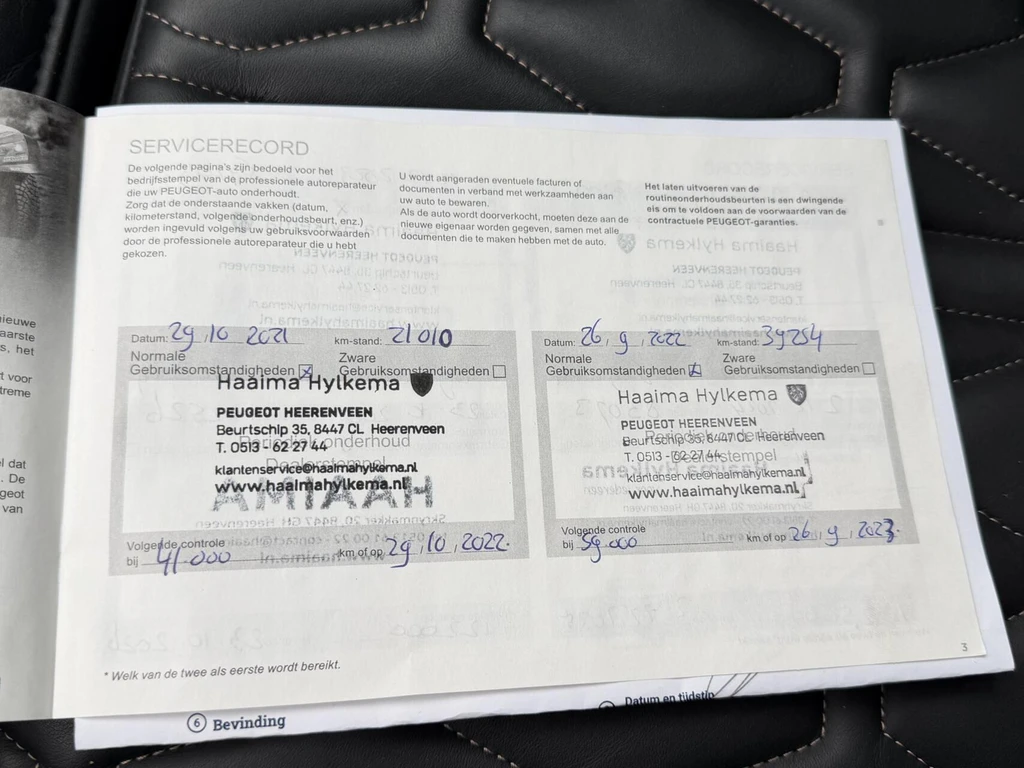 SERVICERECORD
De volgende pagina's zijn bedoeld voor het
bedrijfsstempel van de professionele autoreparateur
die uw PEUGEOT-auto onderhoudt.
Zorg dat de onderstaande vakken (datum,
kilometerstand, volgende onderhoudsbeurt, enz.)
worden ingevuld volgens uw gebruiksvoorwaarden
door de professionele autoreparateur die u hebt
gekozen.
U wordt aangeraden eventuele facturen of
documenten in verband met werkzaamheden aan
uw auto te bewaren.
Als de auto wordt doorverkocht, moeten deze aan de
nieuwe eigenaar worden gegeven, samen met alle
documenten die te maken hebben met de auto.
Het laten uitvoeren van de
routineonderhoudsbeurten is een dwingende
eis om te voldoen aan de voorwaarden van de
contractuele PEUGEOT-garanties.
Datum: 29, 10 2021 km-stand: 21010
Normale Zware
Gebruiksomstandigheden Gebruiksomstandigheden
Haaima Hylkema
PEUGEOT HEERENVEEN
Beurtschip 35, 8447 CL Heerenveen
Periodiek onderhoud
T. 0513 - 62 27 44
Dealerstempel
klantenservice@haaimahylkema.nl
www.haaimahylkema.nl
Volgende controle
bij 41.000 km of op 29, 10, 2022.
Datum: 26, 9, 2022 km-stand: 39254
Normale Zware
Gebruiksomstandigheden Gebruiksomstandigheden
Haaima Hylkema
PEUGEOT HEERENVEEN
Beurtschip 35, 8447 CL Heerenveen
Periodiek onderhoud
T. 0513 - 62 27 44
Dealerstempel
klantenservice@haaimahylkema.nl
www.haaimahylkema.nl
Volgende controle
bij 59.000 km of op 26, 9, 2023.
* Welk van de twee als eerste wordt bereikt.
3
6 Bevinding
Datum en tijdstip
ieuwe
aarste
s, het
t voor
treme
l dat
. De
geot
van